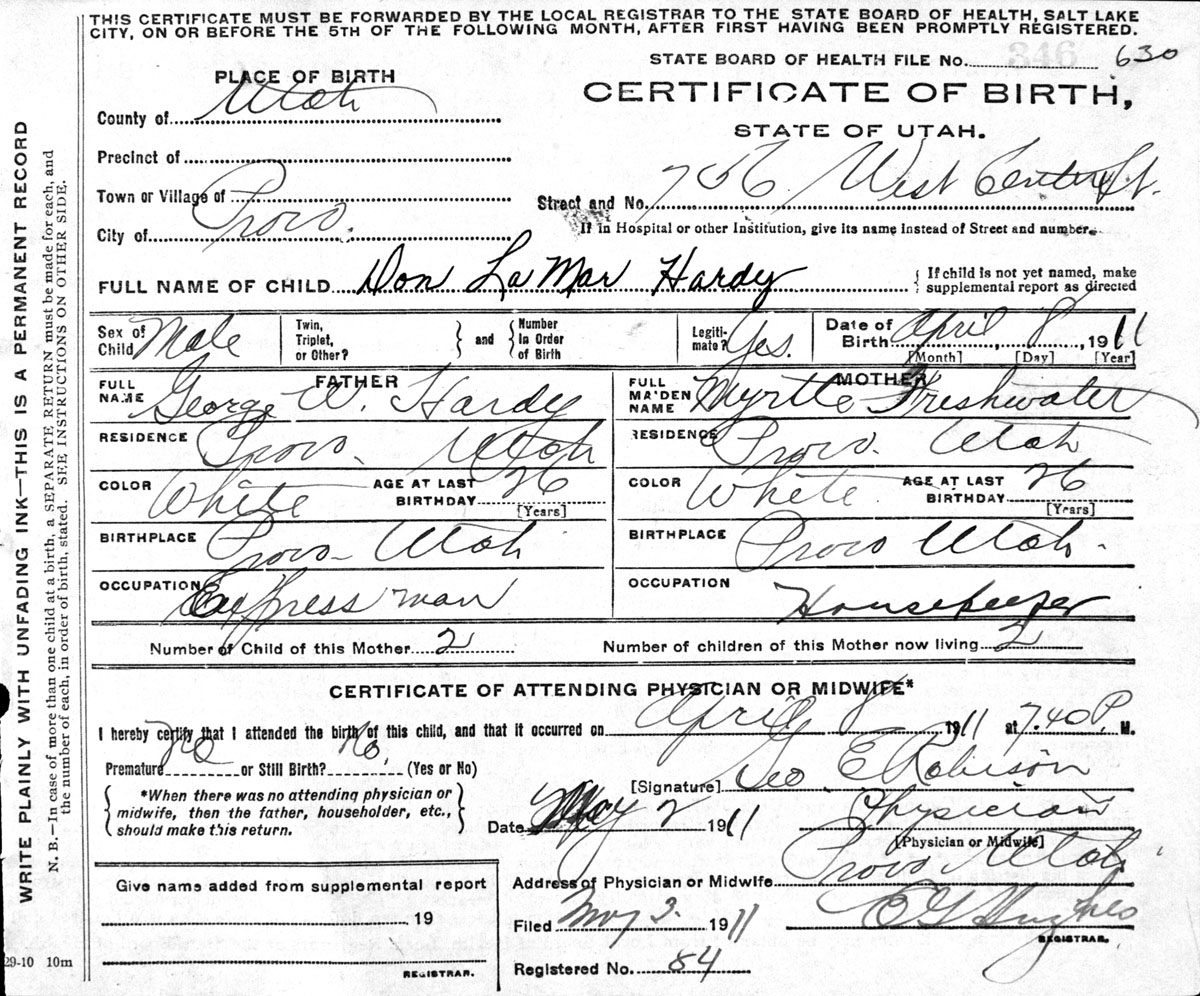 THIS CERTIFICATE MUST BE FORWARDED BY THE LOCAL REGISTRAR TO THE STATE BOARD OF HEALTH, SALT LAKE
CITY, ON OR BEFORE THE 5TH OF THE FOLLOWING MONTH, AFTER FIRST HAVING BEEN PROMPTLY REGISTERED.
STATE BOARD OF HEALTH FILE No. 346 630
PLACE OF BIRTH
CERTIFICATE OF BIRTH,
STATE OF UTAH.
County of Utah
Precinct of
Town or Village of
City of Provo.
Street and No. 756 West Center St.
If in Hospital or other Institution, give its name instead of Street and number.
FULL NAME OF CHILD Don LaMar Hardy
If child is not yet named, make
supplemental report as directed
Sex of Child Male
Twin, Triplet, or Other?
and
Number In Order of Birth
Legitimate? Yes.
Date of Birth April 8, 1911
[Month] [Day] [Year]
FATHER
FULL NAME George W. Hardy
MOTHER
FULL MAIDEN NAME Myrtle Freshwater
RESIDENCE Provo. Utah
RESIDENCE Provo. Utah
COLOR White
AGE AT LAST BIRTHDAY 26
[Years]
COLOR White
AGE AT LAST BIRTHDAY 26
[Years]
BIRTHPLACE Provo Utah
BIRTHPLACE Provo Utah.
OCCUPATION Express man
OCCUPATION Housekeeper
Number of Child of this Mother 2
Number of children of this Mother now living 2
CERTIFICATE OF ATTENDING PHYSICIAN OR MIDWIFE*
I hereby certify that I attended the birth of this child, and that it occurred on April 8 1911 at 7.40 P. M.
Premature No or Still Birth? No. (Yes or No)
[Signature] Geo E Robison
*When there was no attending physician or
midwife, then the father, householder, etc.,
should make this return.
Date May 2 1911
Physician
[Physician or Midwife]
Address of Physician or Midwife Provo Utah
Give name added from supplemental report
19
REGISTRAR.
Filed May 3. 1911
O G Hughes
REGISTRAR.
Registered No. 84
29-10 10m
WRITE PLAINLY WITH UNFADING INK—THIS IS A PERMANENT RECORD
N. B.—In case of more than one child at a birth, a SEPARATE RETURN must be made for each, and
the number of each, in order of birth, stated. SEE INSTRUCTIONS ON OTHER SIDE.